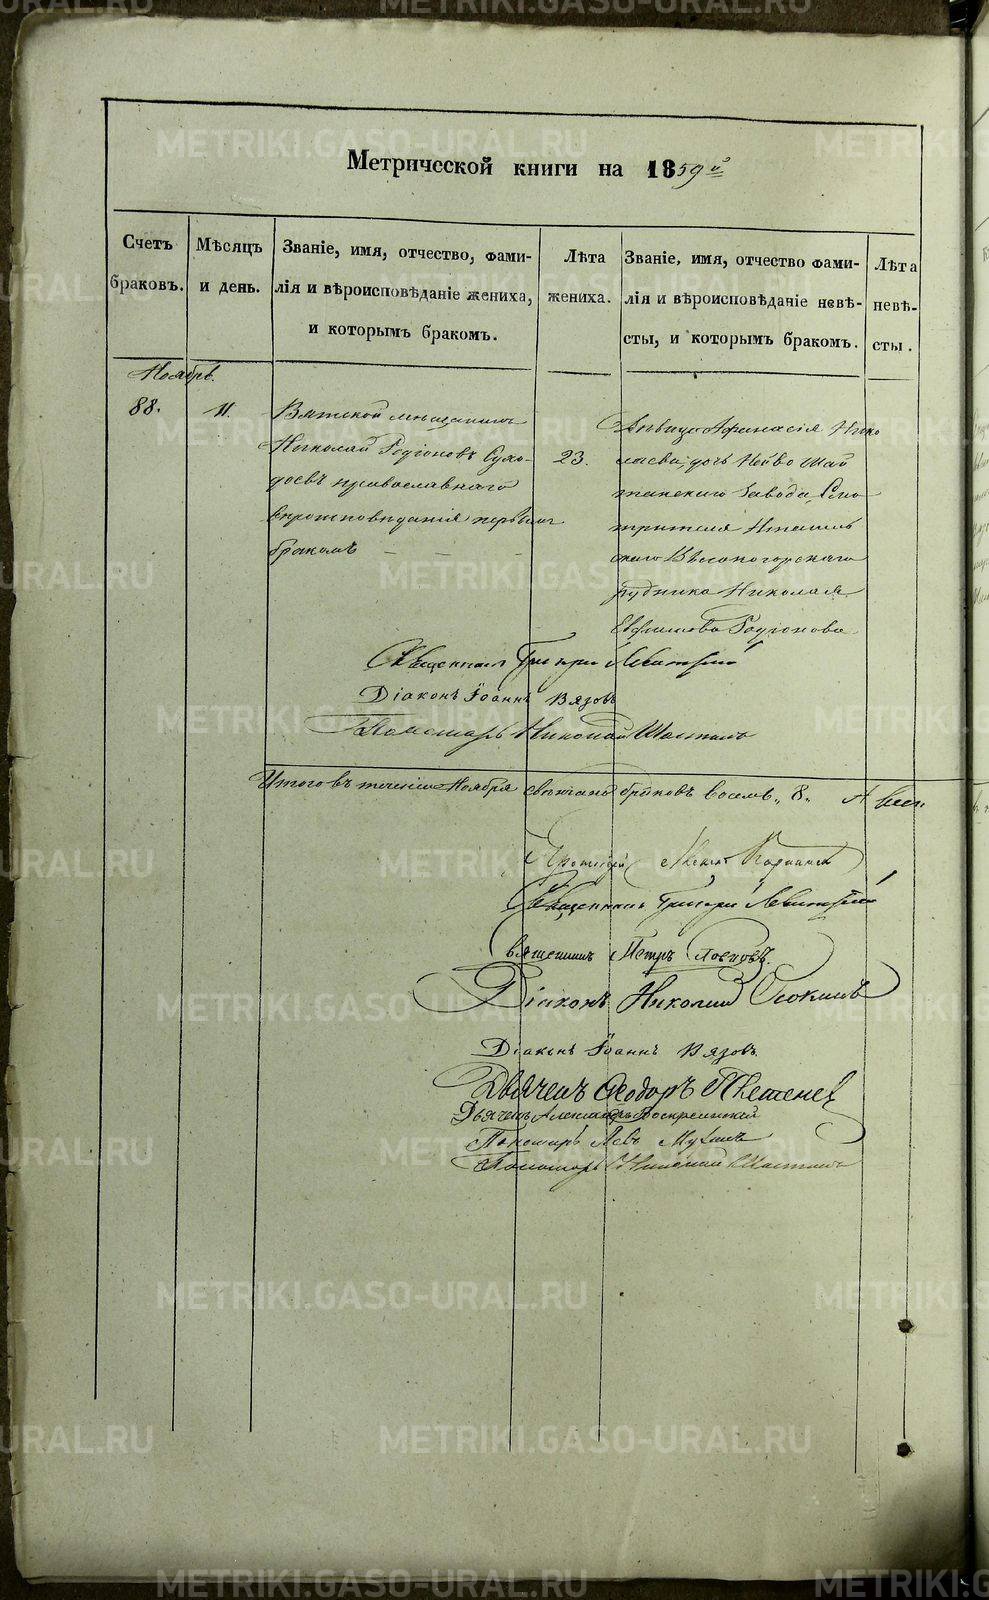 Метрической книги на 1859й
Счетъ браковъ.
Мѣсяцъ и день.
Званіе, имя, отчество, фами-
лія и вѣроисповѣданіе жениха,
и которымъ бракомъ.
Лѣта жениха.
Званіе, имя, отчество фами-
лія и вѣроисповѣданіе невѣ-
сты, и которымъ бракомъ.
Лѣта невѣ-
сты.
Ноябрь.
88.
11.
Вятской мѣщанинъ
Николай Родіоновъ Сухо-
доевъ православнаго
вероисповѣданія первымъ
бракомъ
23.
Дѣвица Афанасія Нико
лаева, дочь Нейво Шай
танскаго Завода, Смо
трителя
Высокогорскаго
рудника Николая
Евфимова Родіонова
Священникъ Григорій Левитскій
Діаконъ Іоаннъ Вязовъ
Пономарь Николай
Итого въ теченіи Ноября свѣнчано браковъ восемь „8„
Протоіерей
Священникъ Григорій Левитскій
священникъ Петръ
Діаконъ Николай Осокинъ
Діаконъ Іоаннъ Вязовъ.
Дьячекъ Ѳеодоръ
Дьячекъ Александръ Воскресенскій
Пономарь Левъ Мухинъ
Пономарь Николай
METRIKI.GASO-URAL.RU